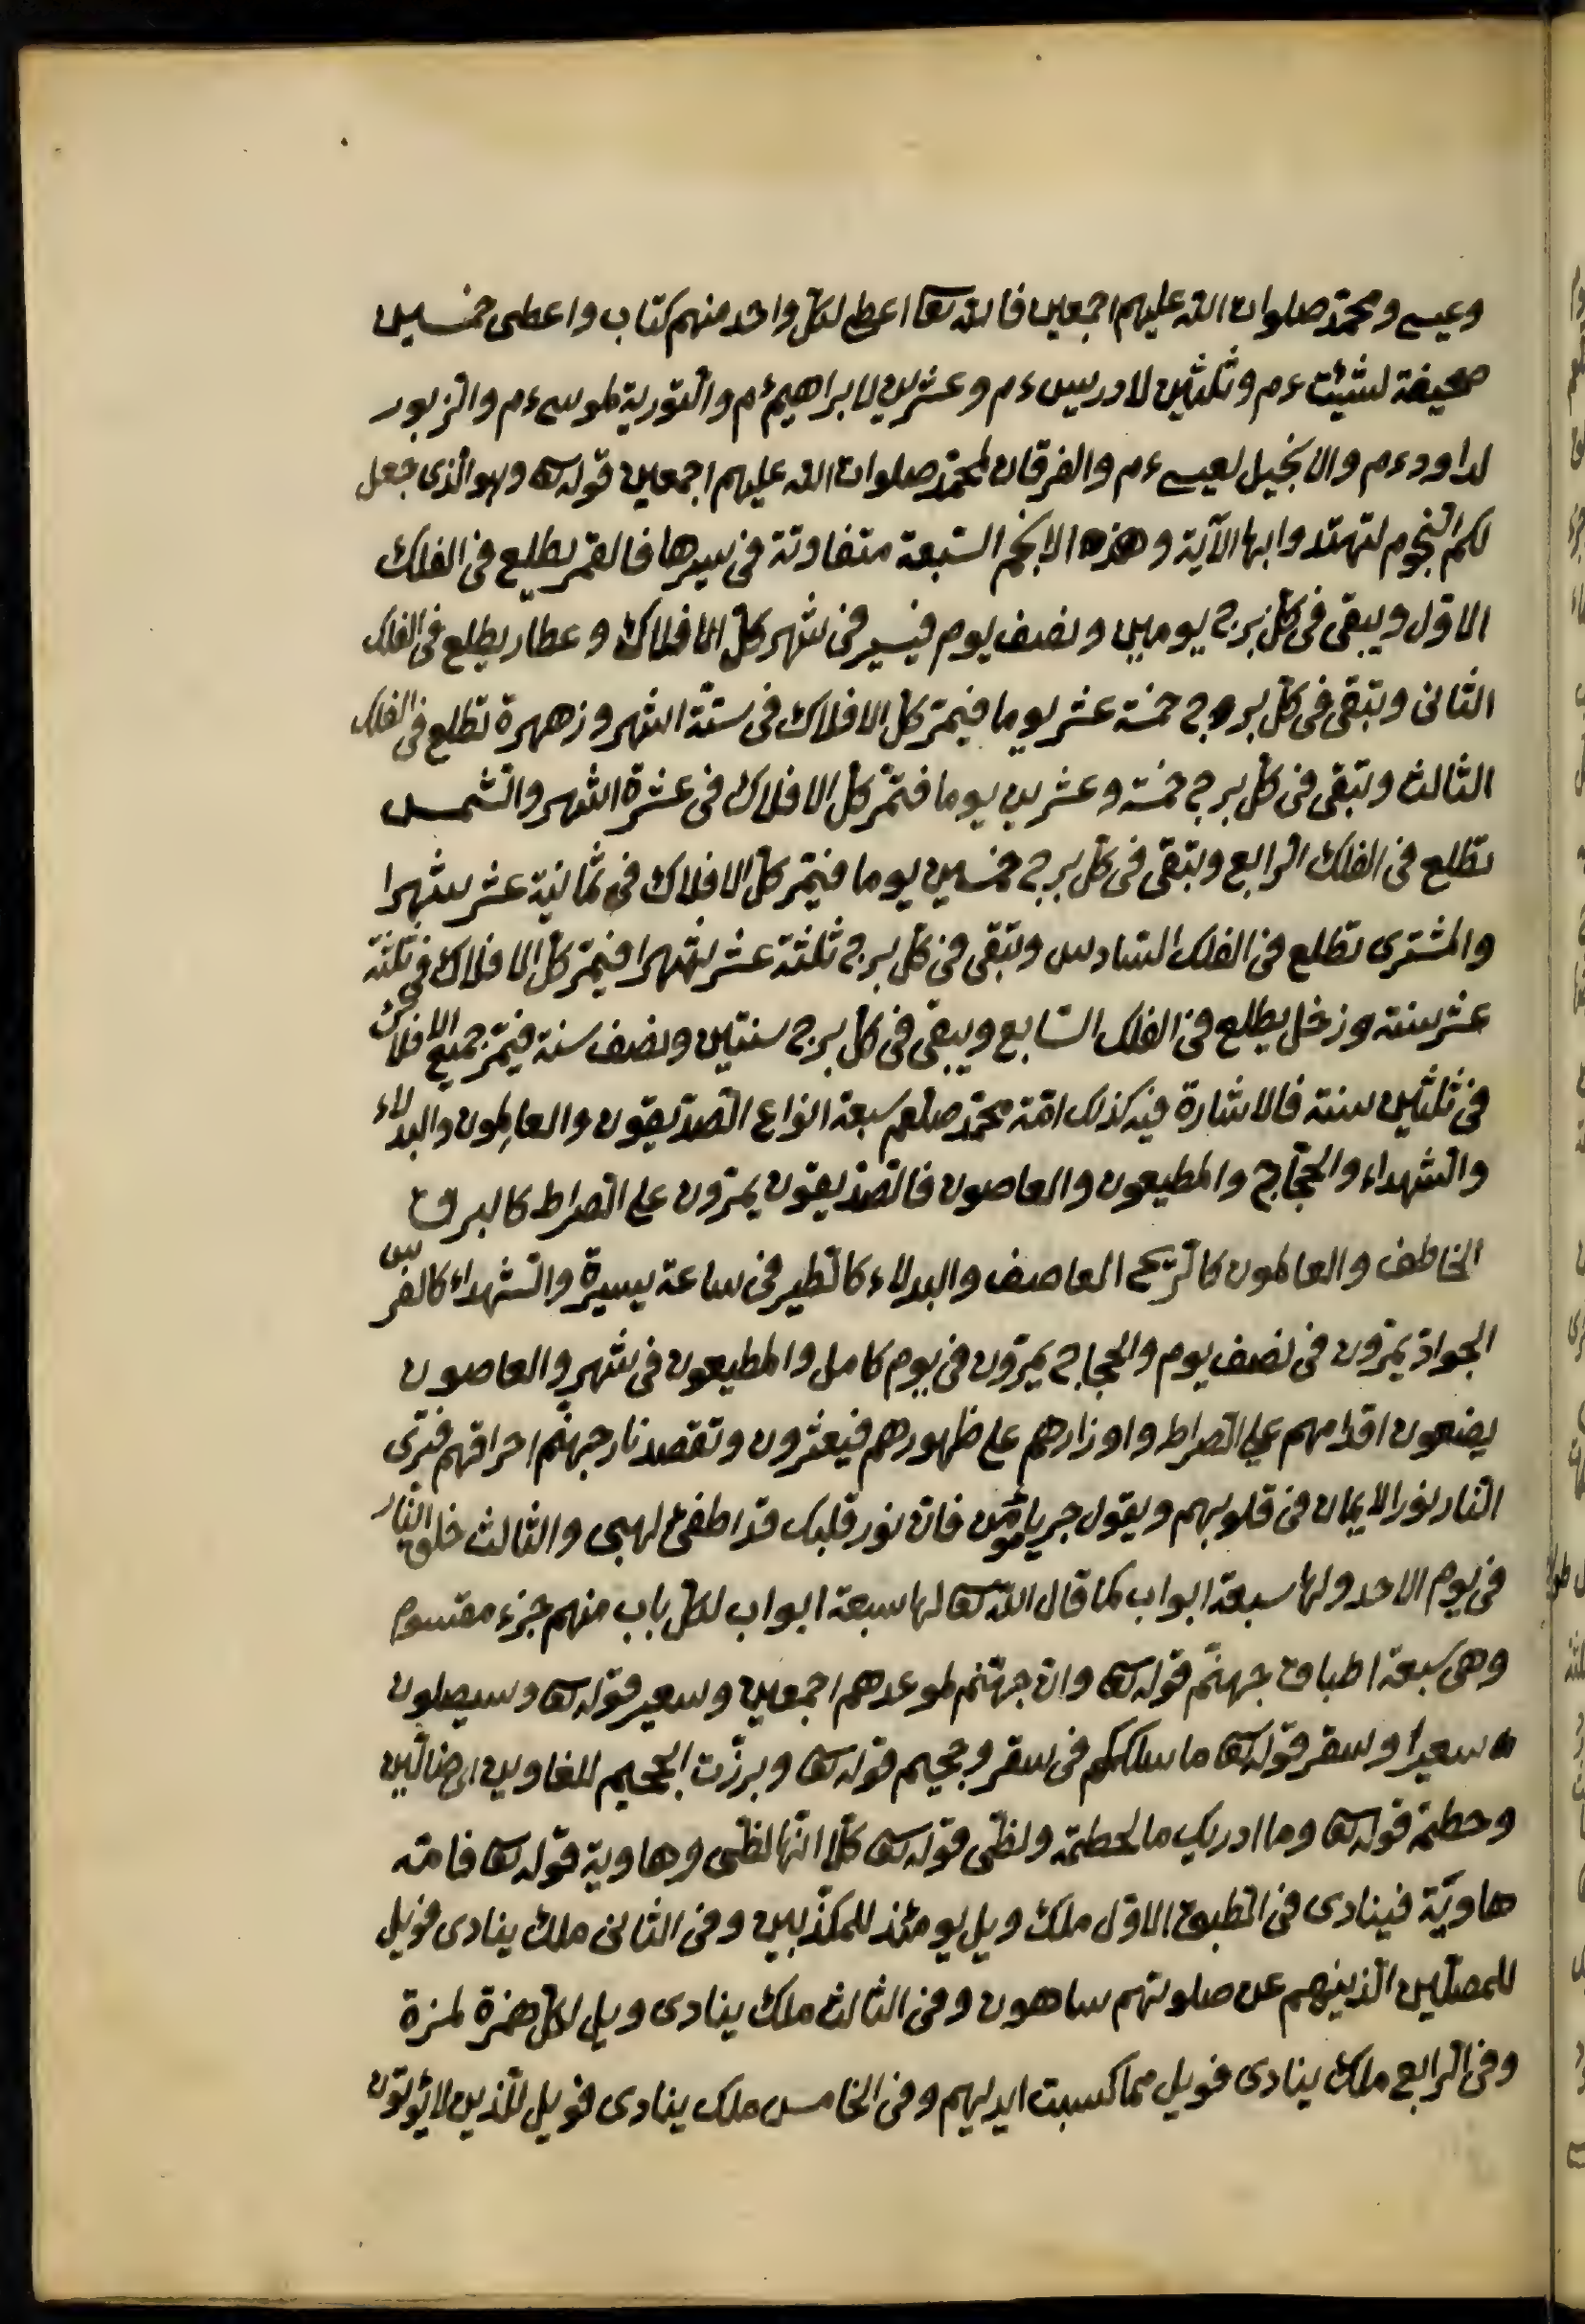 وعيسى ومحمد صلوات الله عليهم اجمعين فالله تعا اعطى لكل واحد منهم كتاب واعطى خمسين
صحيفة لشيئث ءم وثلثين لادريس ءم وعشرين لابراهيم ءم والتورية لموسى ءم والزبور
لداود ءم والانجيل لعيسى ءم والفرقان لمحمد صلوات الله عليهم اجمعين قوله تعا وهو الذى جعل
لكم النجوم لتهتدوا بها الآية وهذه الانجم السبعة متفاوتة فى سيرها فالقمر يطلع فى الفلك
الاول ويبقى فى كل برج يومين ونصف يوم فيسير فى شهر كل الافلاك وعطارد يطلع فى الفلك
الثانى وتبقى فى كل بروج خمسة عشر يوما فيمر كل الافلاك فى ستة اشهر وزهرة تطلع فى الفلك
الثالث وتبقى فى كل برج خمسة وعشرين يوما فتمر كل الافلاك فى عشرة اشهر والشمس
تطلع فى الفلك الرابع وتبقى فى كل برج خمسين يوما فيمر كل الافلاك فى ثمانية عشر شهرا
والمشترى تطلع فى الفلك السادس وتبقى فى كل برج ثلثة عشر شهرا فيمر كل الافلاك فى ثلثة
عشر سنة وزخل يطلع فى الفلك السابع ويبقى فى كل برج سنتين ونصف سنة فيمر جميع الافلاك
فى ثلثين سنة فالاشارة فيه كذلك امة محمد صلعم سبعة انواع الصديقون والعالمون والبدلاء
والشهداء والحجاج والمطيعون والعاصون فالصديقون يمرون على الصراط كالبرق
الخاطف والعالمون كالريح العاصف والبدلاء كالطير فى ساعة يسيرة والشهداء كالفرس
الجواد يمرون فى نصف يوم والحجاج يمرون فى يوم كامل والمطيعون فى شهر والعاصون
يضعون اقدامهم على الصراط واوزارهم على ظهورهم فيعثرون وتقصد نار جهنم احراقهم فترى
النار نور الايمان فى قلوبهم ويقول جز يا مؤمن فان نور قلبك قد اطفئ لهبى والثالث خلق النار
فى يوم الاحد ولها سبعة ابواب كما قال الله تعا لها سبعة ابواب لكل باب منهم جزء مقسوم
وهى سبعة اطباق جهنم قوله تعا وان جهنم لموعدهم اجمعين وسعير قوله تعا وسيصلون
سعيرا وسقر قوله تعا ما سلككم فى سقر وجحيم قوله تعا وبرزت الجحيم للغاوين اى ضالين
وحطمة قوله تعا وما ادريك ما الحطمة ولظى قوله تعا كلا انها لظى وهاوية قوله تعا فامه
هاوية فينادى فى الطبق الاول ملك ويل يومئذ للمكذبين وفى الثانى ملك ينادى فويل
للمصلين الذينهم عن صلوتهم ساهون وفى الثالث ملك ينادى ويل لكل همزة لمزة
وفى الرابع ملك ينادى فويل مما كسبت ايديهم وفى الخامس ملك ينادى فويل للذين لا يؤتون